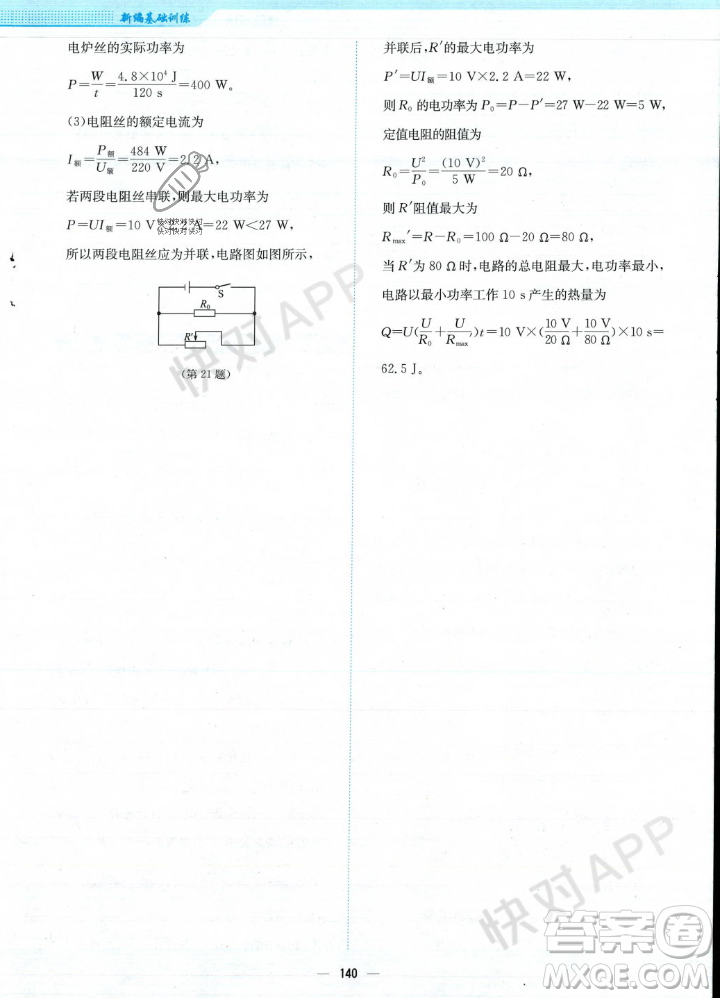 新编基础训练
电炉丝的实际功率为
P=W/t=4.8×10⁴ J/120 s=400 W。
(3)电阻丝的额定电流为
I额=P额/U额=484 W/220 V=2.2 A,
若两段电阻丝串联,则最大电功率为
P=UI额=10 V A=22 W<27 W,
快对快对快对
快对快对快对
所以两段电阻丝应为并联,电路图如图所示,
S
R₀
R′
(第21题)
并联后,R′的最大电功率为
P′=UI额=10 V×2.2 A=22 W,
则 R₀ 的电功率为 P₀=P-P′=27 W-22 W=5 W,
定值电阻的阻值为
R₀=U²/P₀=(10 V)²/5 W=20 Ω,
则 R′阻值最大为
Rmax′=R-R₀=100 Ω-20 Ω=80 Ω,
当 R′为 80 Ω 时,电路的总电阻最大,电功率最小,
电路以最小功率工作 10 s 产生的热量为
Q=U(U/R₀+U/Rmax′)t=10 V×(10 V/20 Ω+10 V/80 Ω)×10 s=
62.5 J。
快对APP
快对APP
140
答案圈
MXQE.COM